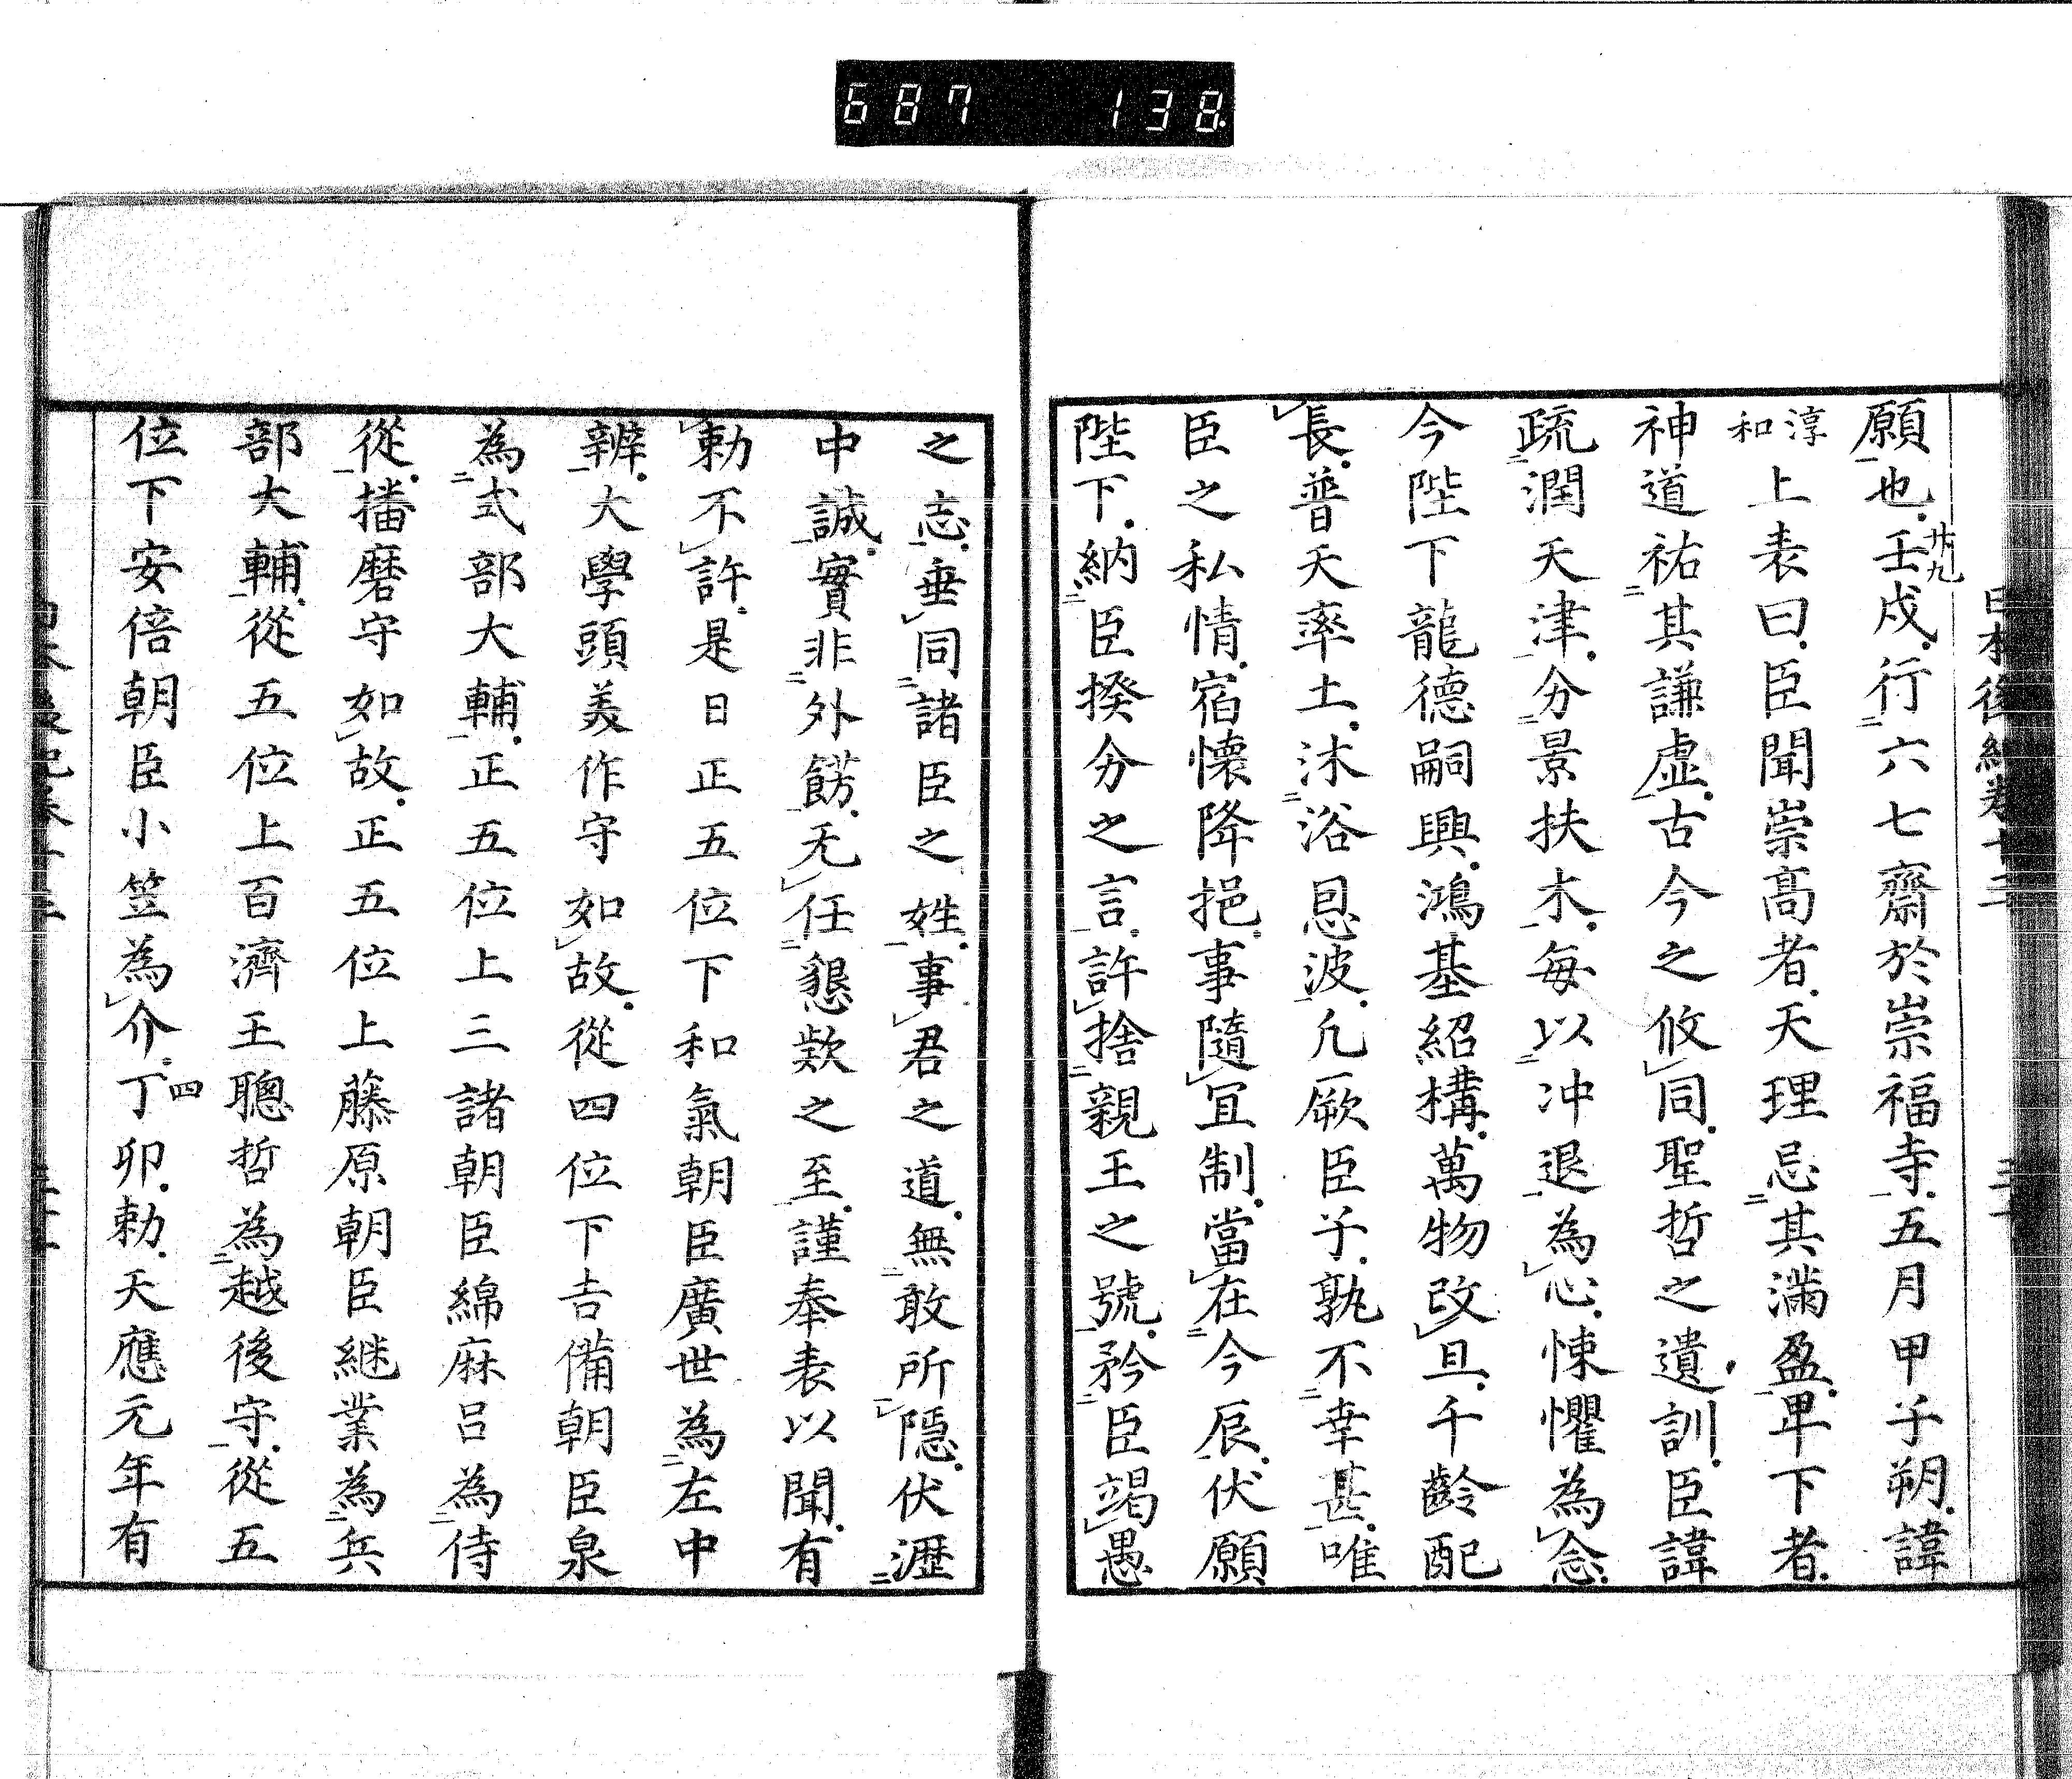 687 138
願也壬戌行六七齋於崇福寺五月甲子朔諱
廿九
淳和上表曰臣聞崇高者天理忌其滿盈卑下者
神道祐其謙虛古今之攸同聖哲之遺訓臣諱
疏潤天津分景扶木每以冲退為心悚懼為念
今陛下龍德嗣興鴻基紹構萬物改旦千齡配
長普天率土沐浴恩波凢厥臣子孰不幸甚唯
臣之私情宿懷降挹事隨宜制當在今辰伏願
陛下納臣揆分之言許捨親王之號矜臣竭愚
之志垂同諸臣之姓事君之道無敢所隱伏瀝
中誠實非外餝无任懇欵之至謹奉表以聞有
勅不許是日正五位下和氣朝臣廣世為左中
辨大學頭美作守如故從四位下吉備朝臣泉
為式部大輔正五位上三諸朝臣綿麻呂為侍
從播磨守如故正五位上藤原朝臣継業為兵
部大輔從五位上百濟王聰哲為越後守從五
位下安倍朝臣小笠為介丁卯勅天應元年有
四